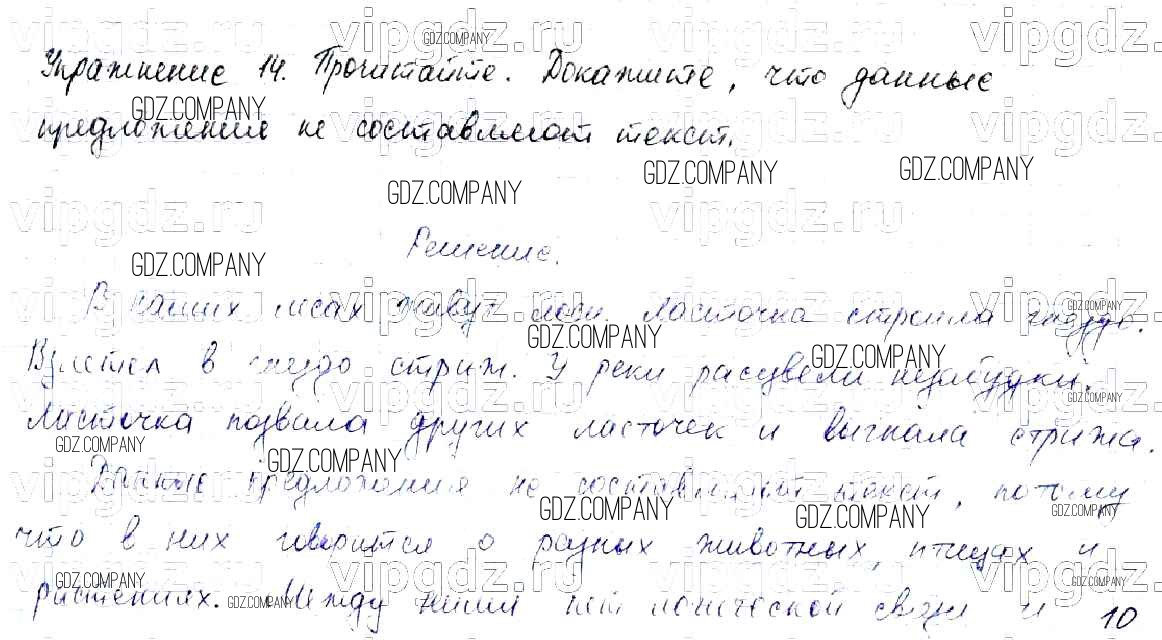 Упражнение 14. Прочитайте. Докажите, что данные
предложения не составляют текст.
Решение.
В наших лесах живут лоси. Ласточка строила гнездо.
Влетел в гнездо стриж. У реки расцвели незабудки.
Ласточка позвала других ласточек и выгнала стрижа.
Данные предложения не составляют текст, потому
что в них говорится о разных животных, птицах и
растениях. Между ними нет логической связи и
10